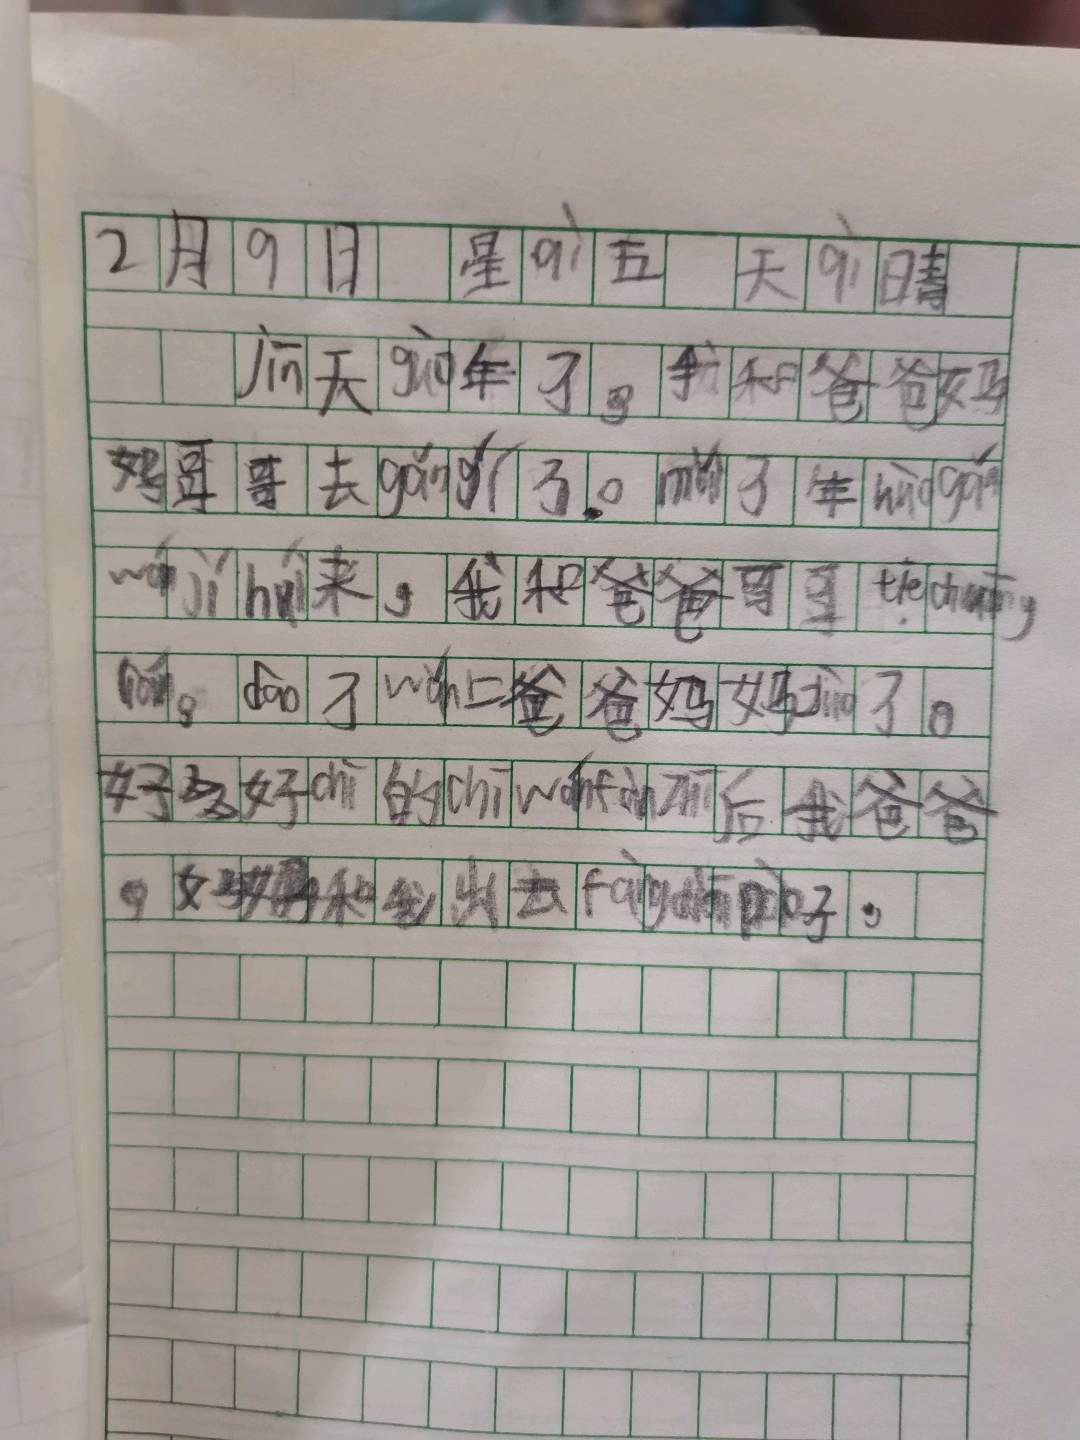 2月9日 星qì五 天qì晴
jīn天guò年了。我和爸爸妈
妈哥哥去gǎnjí了。mǎi了年huògǎn
wánjí huí来,我和爸爸哥哥tiēchuāng
dào了wǎn上爸爸妈妈zuò了。
好多好chī的chī wánfàn zhī后我爸爸
,妈妈和我出去fàng